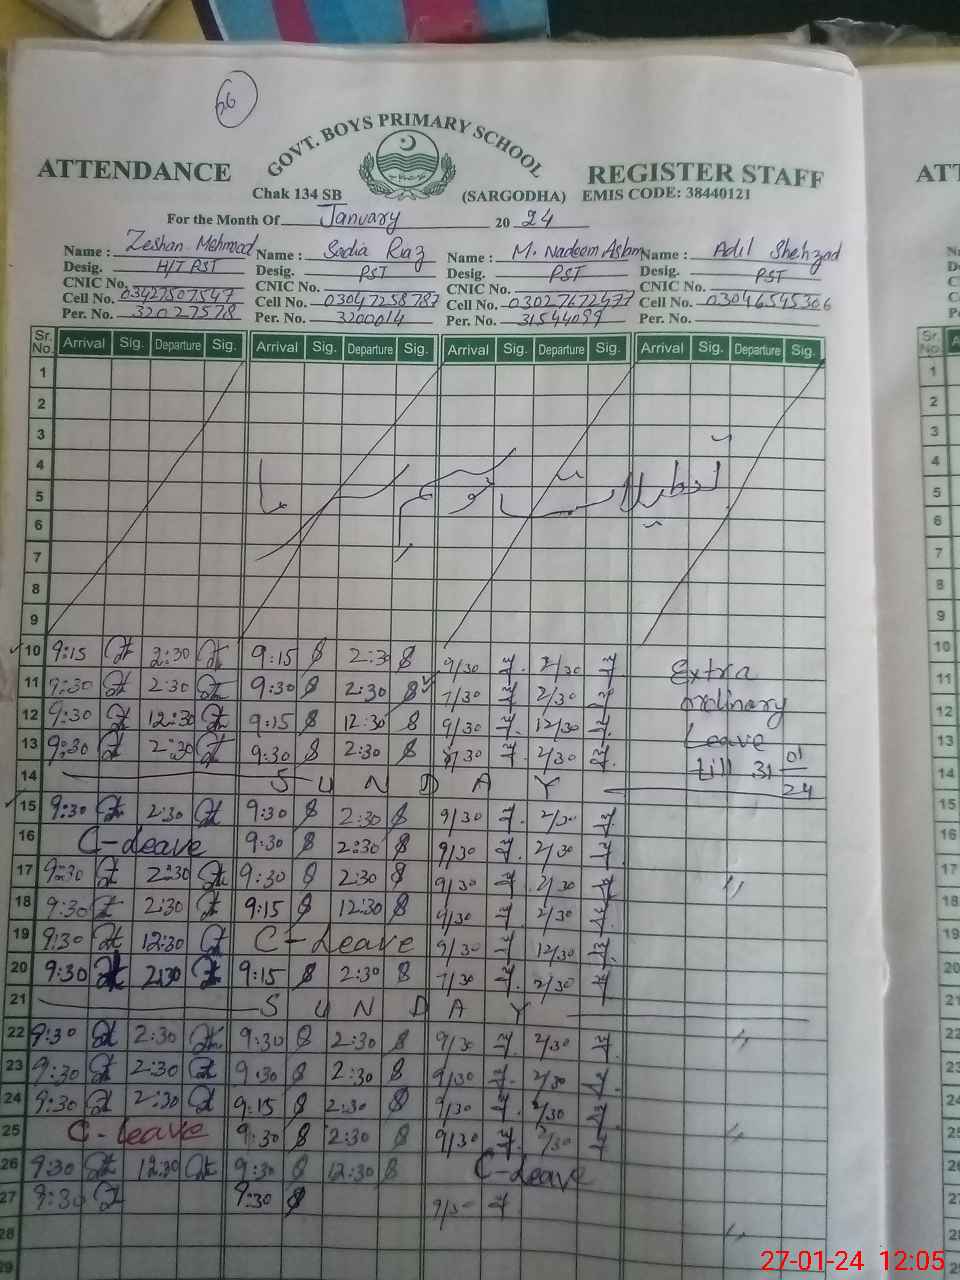 26
GOVT. BOYS PRIMARY SCHOOL
ATTENDANCE REGISTER STAFF
Chak 134 SB (SARGODHA) EMIS CODE: 38440121
For the Month Of January 20 24
Name : Zeshan Mehmood Name : Sadia Riaz Name : M. Nadeem Aslam Name : Adil Shehzad
Desig. H/T PST Desig. PST Desig. PST Desig. PST
CNIC No. CNIC No. CNIC No. CNIC No.
Cell No. 03427507547 Cell No. 03047258787 Cell No. 03027672477 Cell No. 03046545306
Per. No. 32027578 Per. No. 3200014 Per. No. 31544099 Per. No.
Sr. No. Arrival Sig. Departure Sig. Arrival Sig. Departure Sig. Arrival Sig. Departure Sig. Arrival Sig. Departure Sig.
1
2
3
4
تعطیلات موسم سرما
5
6
7
8
9
10 9:15 2:30 9:15 2:30 9/30 2/30 Extra
11 9:30 2:30 9:30 2:30 9/30 2/30 ordinary
12 9:30 12:30 9:15 12:30 9/30 12/30 Leave
13 9:30 2:30 9:30 2:30 9/30 2/30 till 31 01
14 S U N D A Y 24
15 9:30 2:30 9:30 2:30 9/30 2/30
16 C-Leave 9:30 2:30 9/30 2/30
17 9:30 2:30 9:30 2:30 9/30 2/30 "
18 9:30 2:30 9:15 12:30 9/30 2/30
19 9:30 12:30 C-Leave 9/30 12/30
20 9:30 2:30 9:15 2:30 9/30 2/30
21 S U N D A Y
22 9:30 2:30 9:30 2:30 9/30 2/30 "
23 9:30 2:30 9:30 2:30 9/30 2/30
24 9:30 2:30 9:15 2:30 9/30 2/30
25 C-Leave 9:30 2:30 9/30 2/30 "
26 9:30 12:30 9:30 12:30 C-Leave
27 9:30 9:30 9/30
28 "
29
27-01-24 12:05